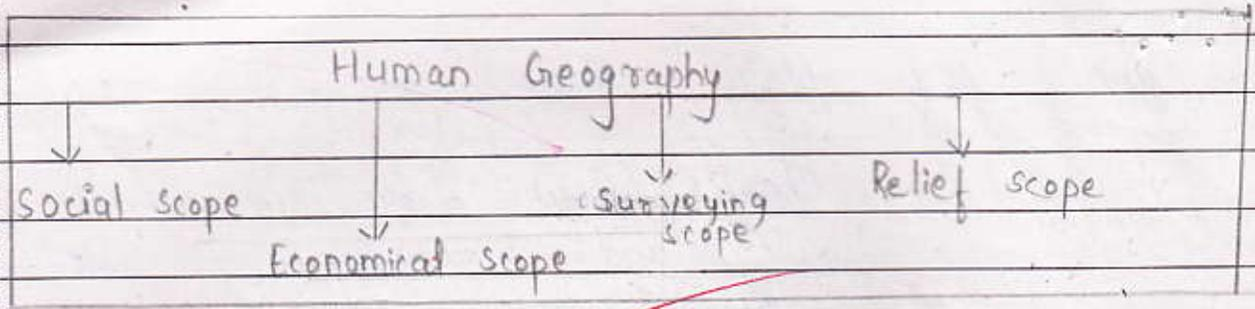 Human Geography
Social scope
Economical scope
Surveying
scope
Relief scope